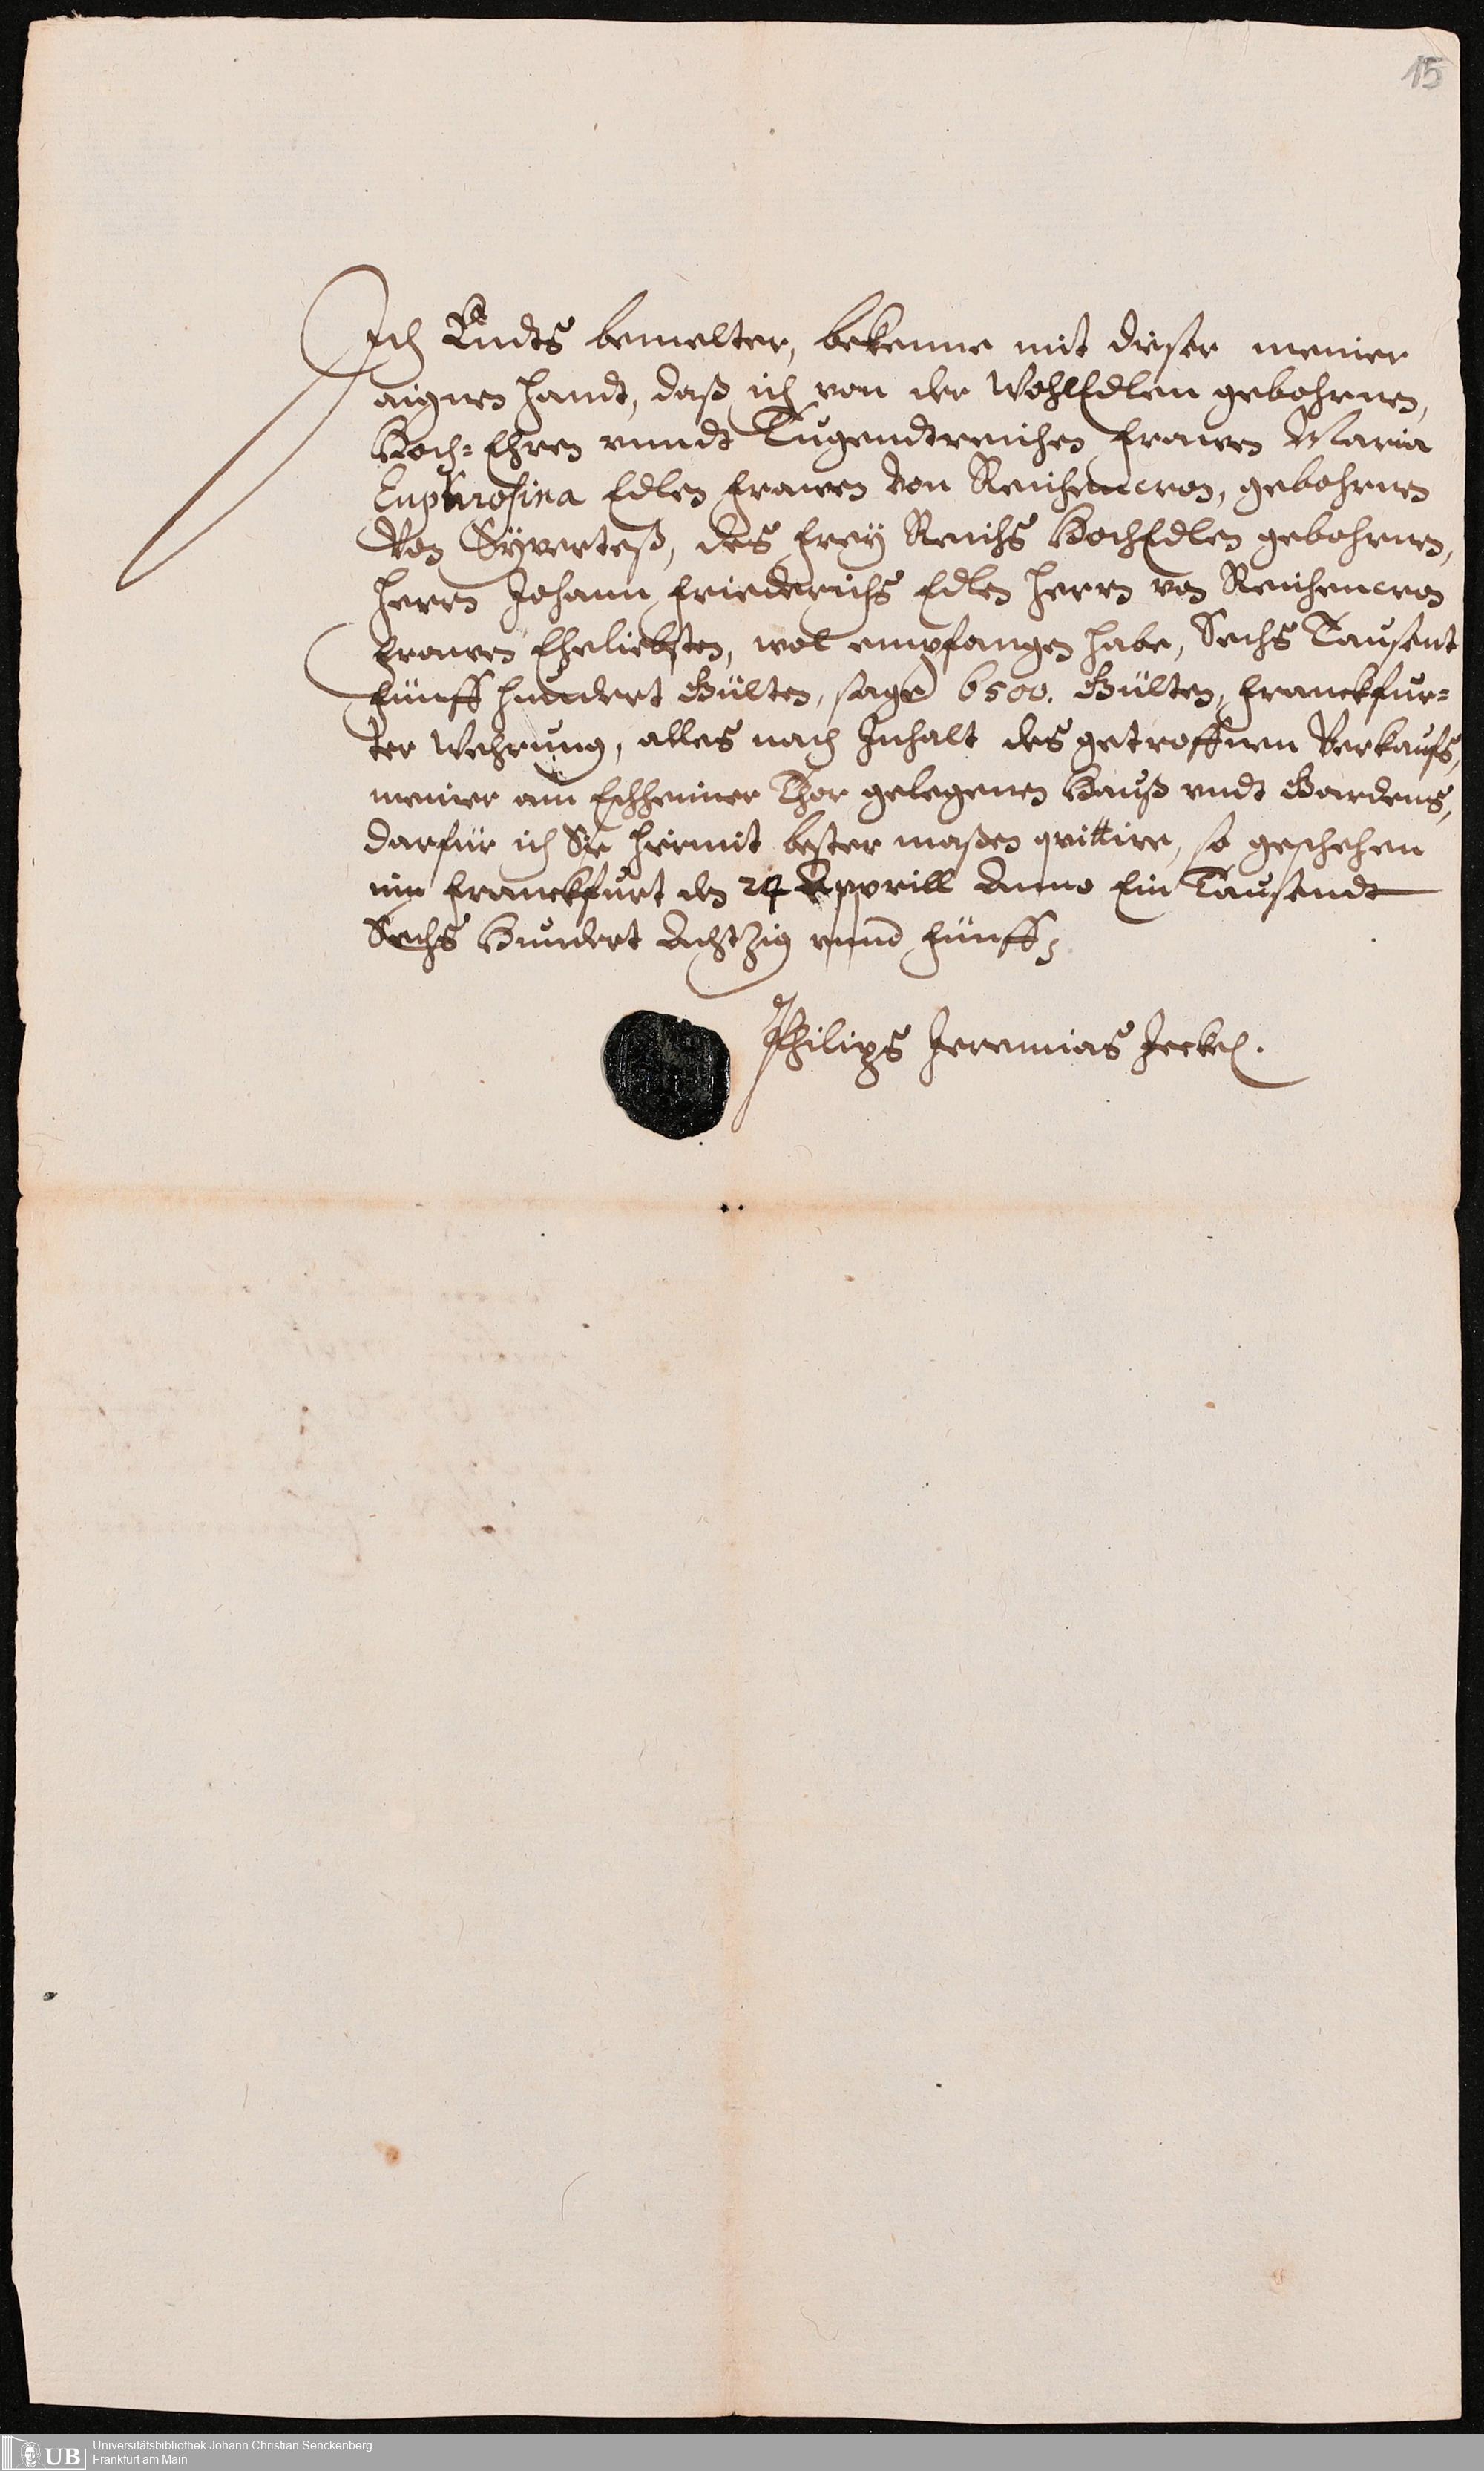 15
Ich Endts bemelter, bekenne mit dieser meiner
aignen handt, daß ich von der WohlEdlen gebohrnen,
Hoch-Ehren vnndt Tugendtreichen frawen Maria
Euphrosina Edlen frawen von Reichencron, gebohrnen
Von Syverteß, des frey Reichs HochEdlen gebohrnen,
Herrn Johann friederichs Edlen Herrn von Reichencron
frawen Eheliebsten, wol empfangen habe, Sechs Tausent
fünff hundert Gülten, sage 6500. Gülten, franckfur-
ter Wehrung, alles nach Inhalt des getroffnen Verkaufs,
meiner am Eschheimer Thor gelegenen Hauß vndt Gardens,
darfür ich Sie hirmit bester maßen qvittire, so geschehen
inn franckfurt den 24 Apprill Anno Ein Tausendt
Sechs Hundert Achtzig vnnd fünff
Philips Jeremias Jeckel.
UB
Universitätsbibliothek Johann Christian Senckenberg
Frankfurt am Main